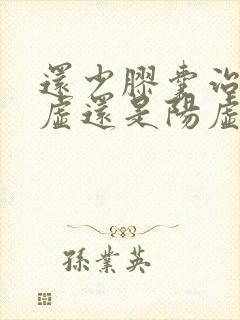 還少膠囊治
虛還是陽虛
孫業英